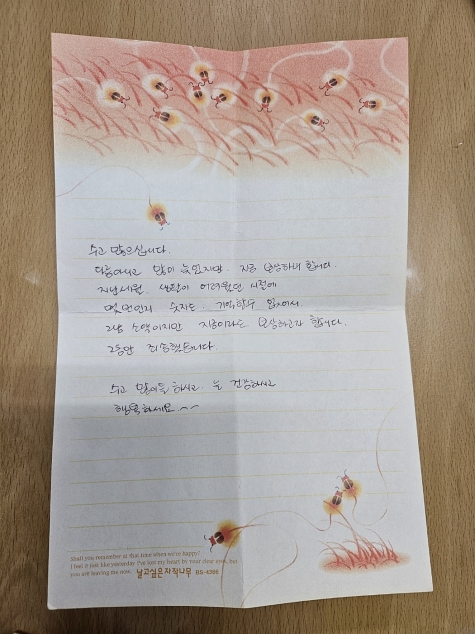 수고 많으십니다.
다름아니고 많이 늦었지만. 지금 보상하려 합니다.
지난세월. 생활이 어려웠던 시절에
몇번인지 숫자는. 기억할수 없지만
그냥 소액이지만 지금이라도 보상하고자 합니다.
그동안 죄송했습니다.
수고 많이들 하시고. 늘 건강하시고
행복하세요 ~~
Shall you remember at that time when we're happy?
I feel it just like yesterday. I've lost my heart by your clear eyes, but
you are leaving me now. 날고싶은자작나무 BS-4386